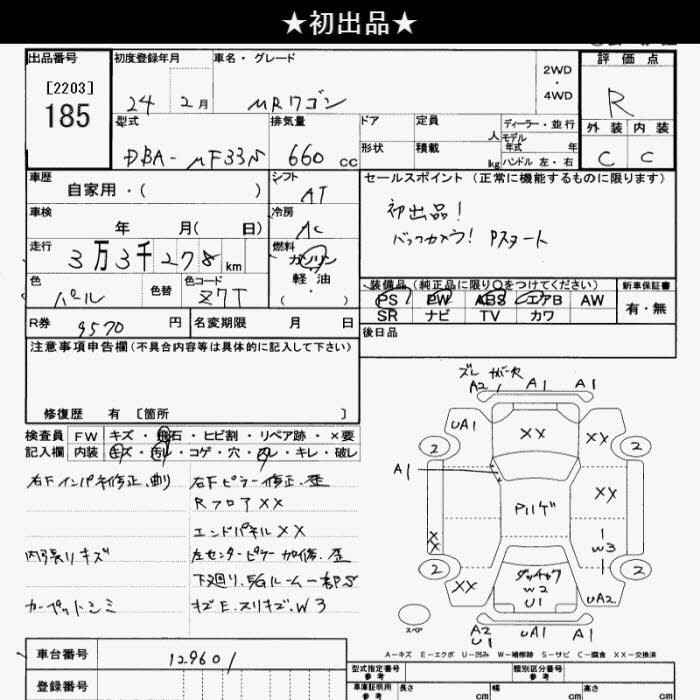 ★初出品★
出品番号
[2203]
185
初度登録年月
24 2月
車名・グレード
MRワゴン
2WD
・
4WD
評価点
R
外装 内装
C C
型式
DBA-MF33S
排気量
660 cc
ドア 定員 人
形状 積載 kg
ディーラー・並行
モデル
年式 年
ハンドル 左・右
車歴
自家用・( )
シフト
AT
車検
年 月( 日)
冷房
AC
走行
3万3千278km
燃料
ガソリン
軽油
( ・ )
色
パール
色替
色コード
Z7T
R券 9570 円
名変期限 月 日
セールスポイント (正常に機能するものに限ります)
初出品!
バックカメラ! Pスタート
装備品 (純正品に限り○をつけてください)
PS PW ABS エアB AW
SR ナビ TV カワ
新車保証書
有・無
後日品
注意事項申告欄(不具合内容等は具体的に記入して下さい)
修復歴 有 [箇所 ]
検査員 FW キズ・飛石・ヒビ割・リペア跡・×要
記入欄 内装 キズ・汚レ・コゲ・穴・スレ・キレ・破レ
右Fインパネ修正、曲
右Fピラー修正、歪
Rフロア××
エンドパネル××
内張りキズ
左センターピラー加修、歪
下廻り、EGルーム一部S
カーペットシミ
キズE、スリキズ、W3
A2 A1 A1
UA1
××
××
2
2
A1
××
Pルーフ
××
W3
2
2
××
W2
U1
UA2
スペア
A2
U1
UA1
A1
A-キズ E-エクボ U-凹み W-補修跡 S-サビ C-腐食 ××-交換済
車台番号
129601
登録番号
型式指定番号
参考
類別区分番号
参考
車庫証明用
参考
長さ cm
幅 cm
高さ cm